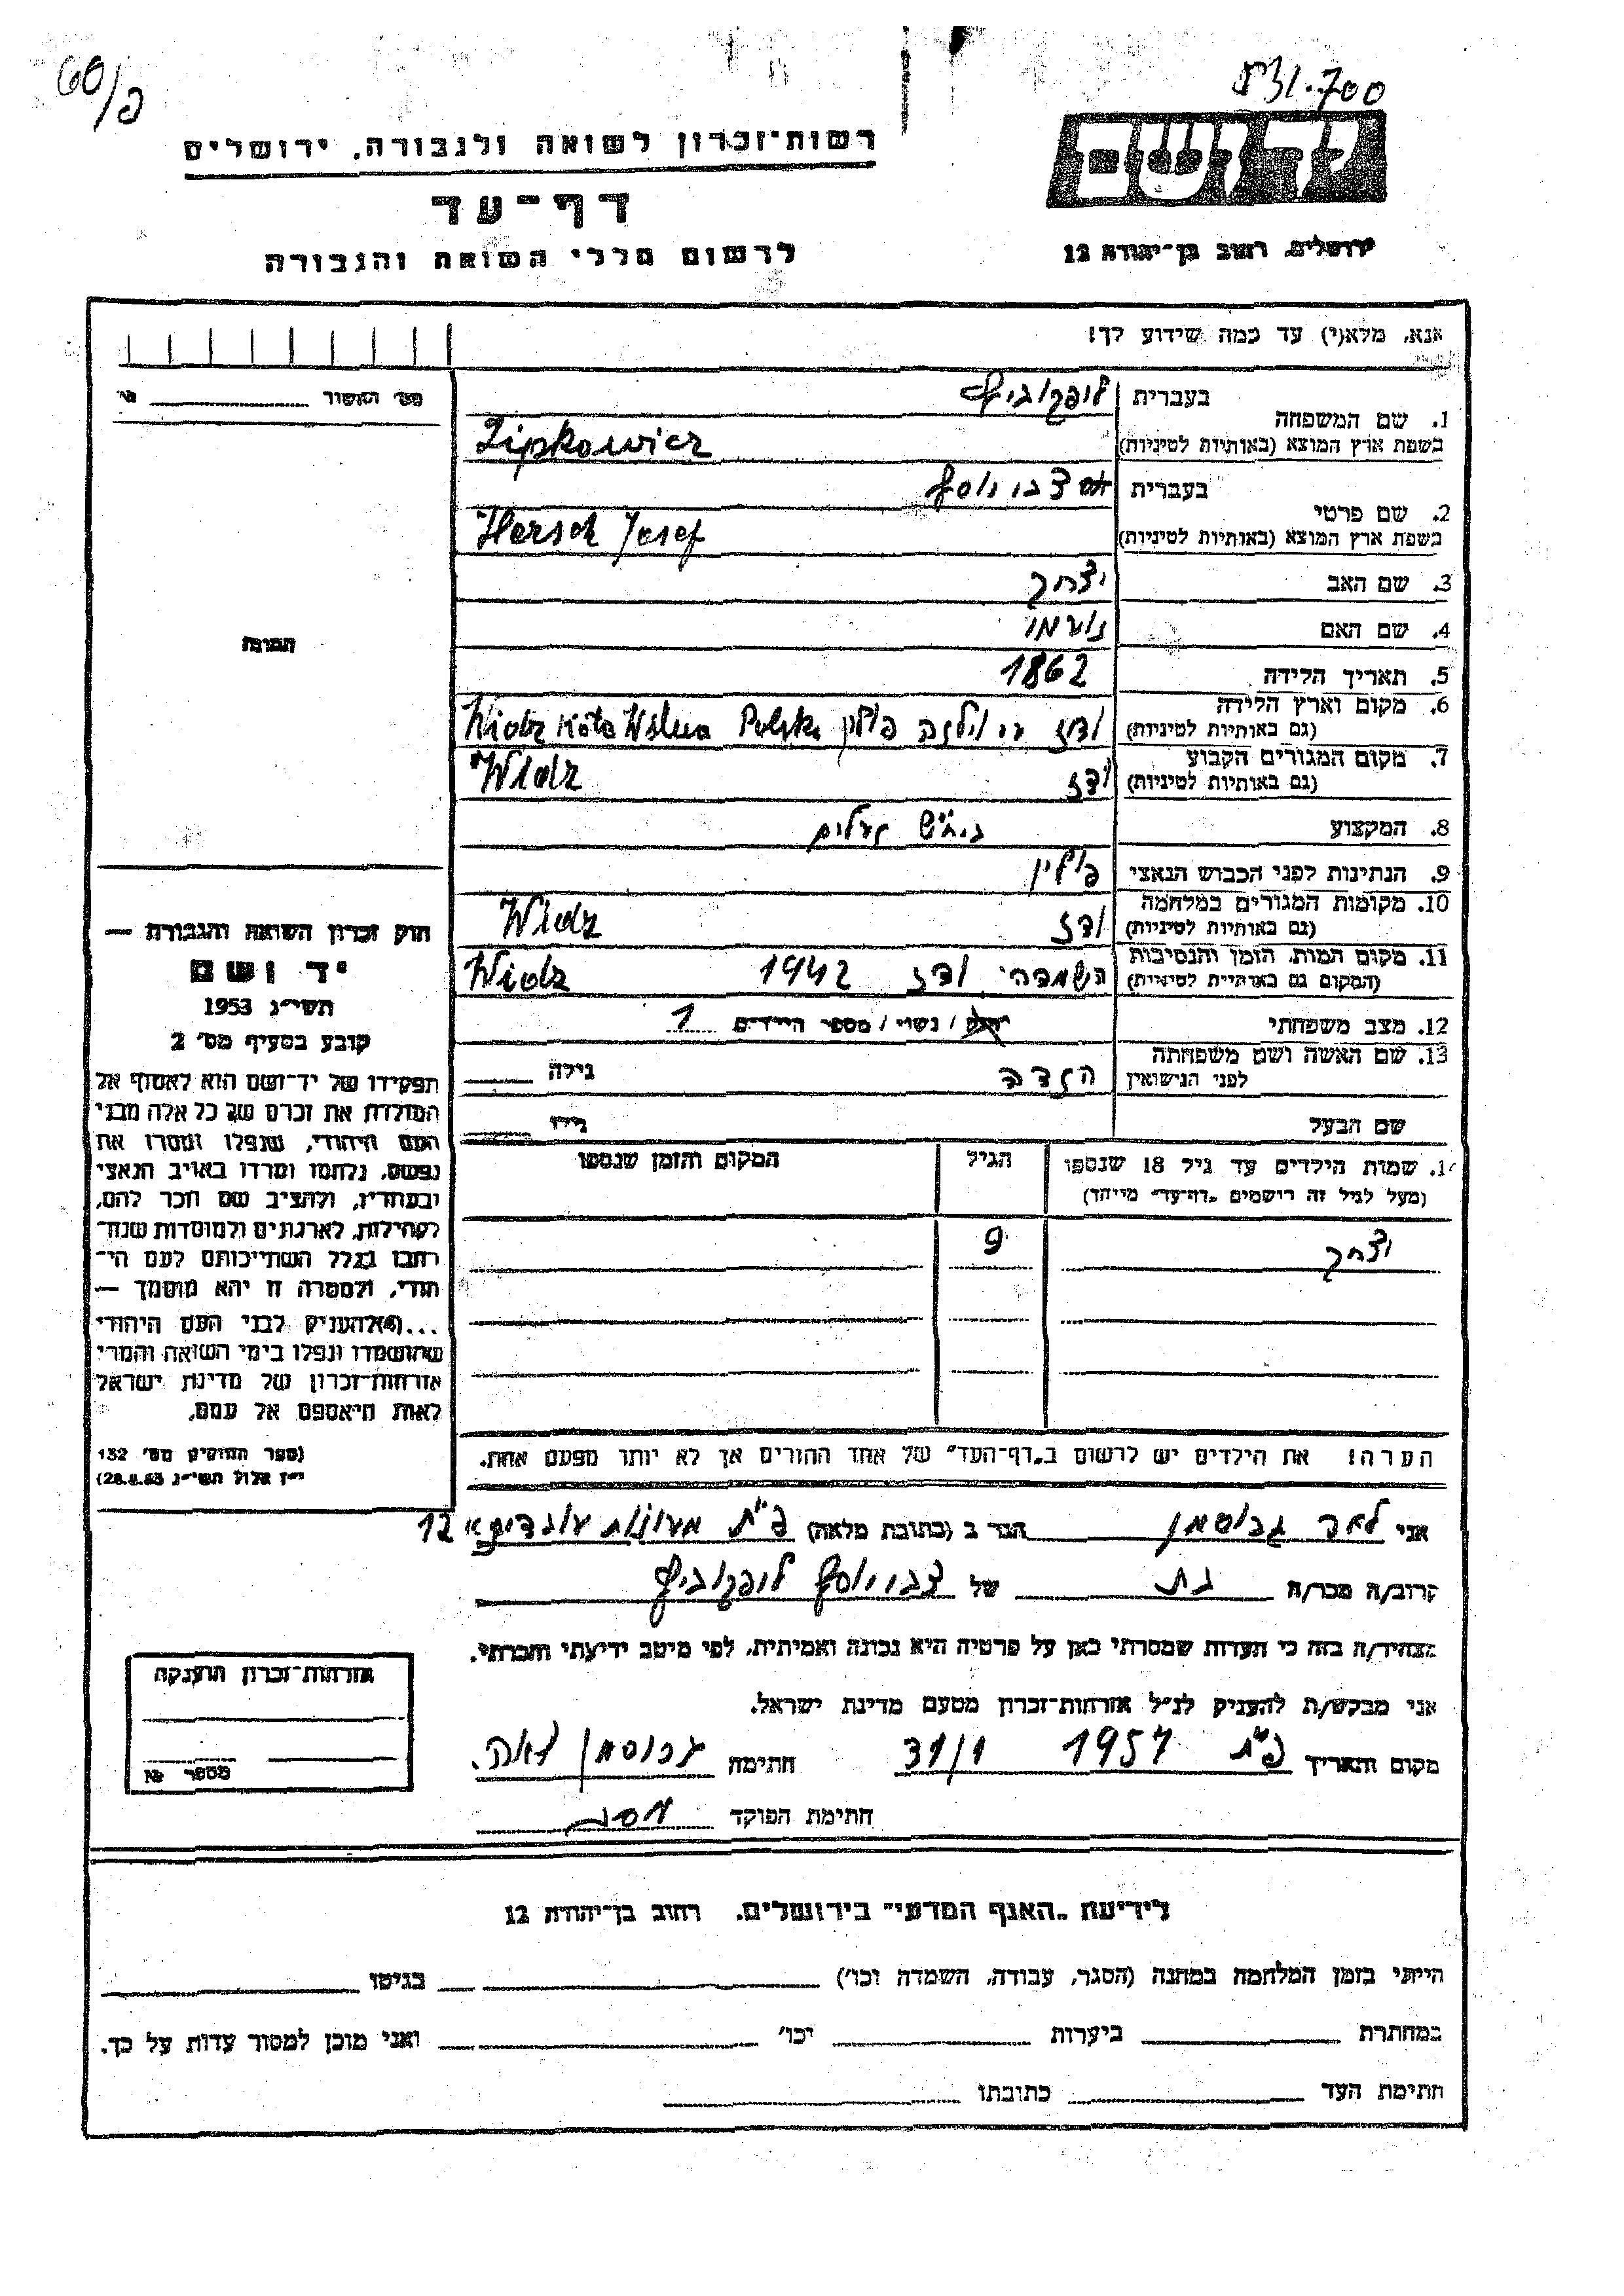 60/פ
31.700
רשות־זכרון לשואה ולגבורה, ירושלים
דף־עד
לרשום חללי השואה והגבורה
יד ושם
ירושלים, רחוב בן־יהודה 12
אנא, מלא(י) עד כמה שידוע לך!
מס' האשור ______ №
1. שם המשפחה בעברית
בשפת ארץ המוצא (באותיות לטיניות) Lipkowicz
2. שם פרטי בעברית צבי יוסף
בשפת ארץ המוצא (באותיות לטיניות) Hersch Josef
3. שם האב יצחק
4. שם האם נעמי
5. תאריך הלידה 1862
6. מקום וארץ הלידה
(גם באותיות לטיניות) ודז ע"י וילנה פולין Widz Koło Wilna Polska
7. מקום המגורים הקבוע
(גם באותיות לטיניות) ודז Widz
8. המקצוע
9. הנתינות לפני הכבוש הנאצי פולין
10. מקומות המגורים במלחמה
(גם באותיות לטיניות) ודז Widz
11. מקום המות, הזמן והנסיבות
(המקום גם באותיות לטיניות) השמדה ודז 1942 Widz
12. מצב משפחתי רווק / נשוי / מספר הילדים 1
13. שם האשה ושם משפחתה
לפני הנישואין גילה
שם הבעל גילו
14. שמות הילדים עד גיל 18 שנספו הגיל המקום והזמן שנספו
(מעל לגיל זה רישמים "דף־עד" מיוחד)
יצחק 9
הערה! את הילדים יש לרשום ב"דף־העד" של אחד ההורים אך לא יותר מפעם אחת.
התמונה
חוק זכרון השואה והגבורה —
יד ושם
תשי״ג 1953
קובע בסעיף מס' 2
תפקידו של יד־ושם הוא לאסוף אל
המולדת את זכרם של כל אלה מבני
העם היהודי, שנפלו ומסרו את
נפשם, נלחמו ומרדו באויב הנאצי
ובעוזריו, ולהציב שם וזכר להם,
לקהילות, לארגונים ולמוסדות שנח־
רבו בגלל השתייכותם לעם הי־
הודי, ולמטרה זו יהא מוסמך —
...(4)להעניק לבני העם היהודי
שהושמדו ונפלו בימי השואה והמרי
אזרחות־זכרון של מדינת ישראל
לאות היאספם אל עמם.
(ספר החוקים מס' 132
י״ז אלול תשי״ג 28.8.53)
אני לאה גרוסמן הגר ב (כתובת מלאה) פ"ת מעונות עובדים 12
קרוב/ה מכר/ה בת של צבי יוסף ליפקוביץ
מצהיר/ה בזה כי העדות שמסרתי כאן על פרטיה היא נכונה ואמיתית, לפי מיטב ידיעתי והכרתי.
אני מבקש/ת להעניק לנ״ל אזרחות־זכרון מטעם מדינת ישראל.
מקום ותאריך פ"ת 1957 31/1 חתימה גרוסמן לאה.
חתימת הפוקד
אזרחות־זכרון הוענקה
מספר №
לידיעת "האגף המדעי" בירושלים, רחוב בן־יהודה 12
הייתי בזמן המלחמה במחנה (הסגר, עבודה, השמדה וכו') בגיטו
במחתרת ביערות וכו' ואני מוכן למסור עדות על כך.
חתימת העד כתובתו